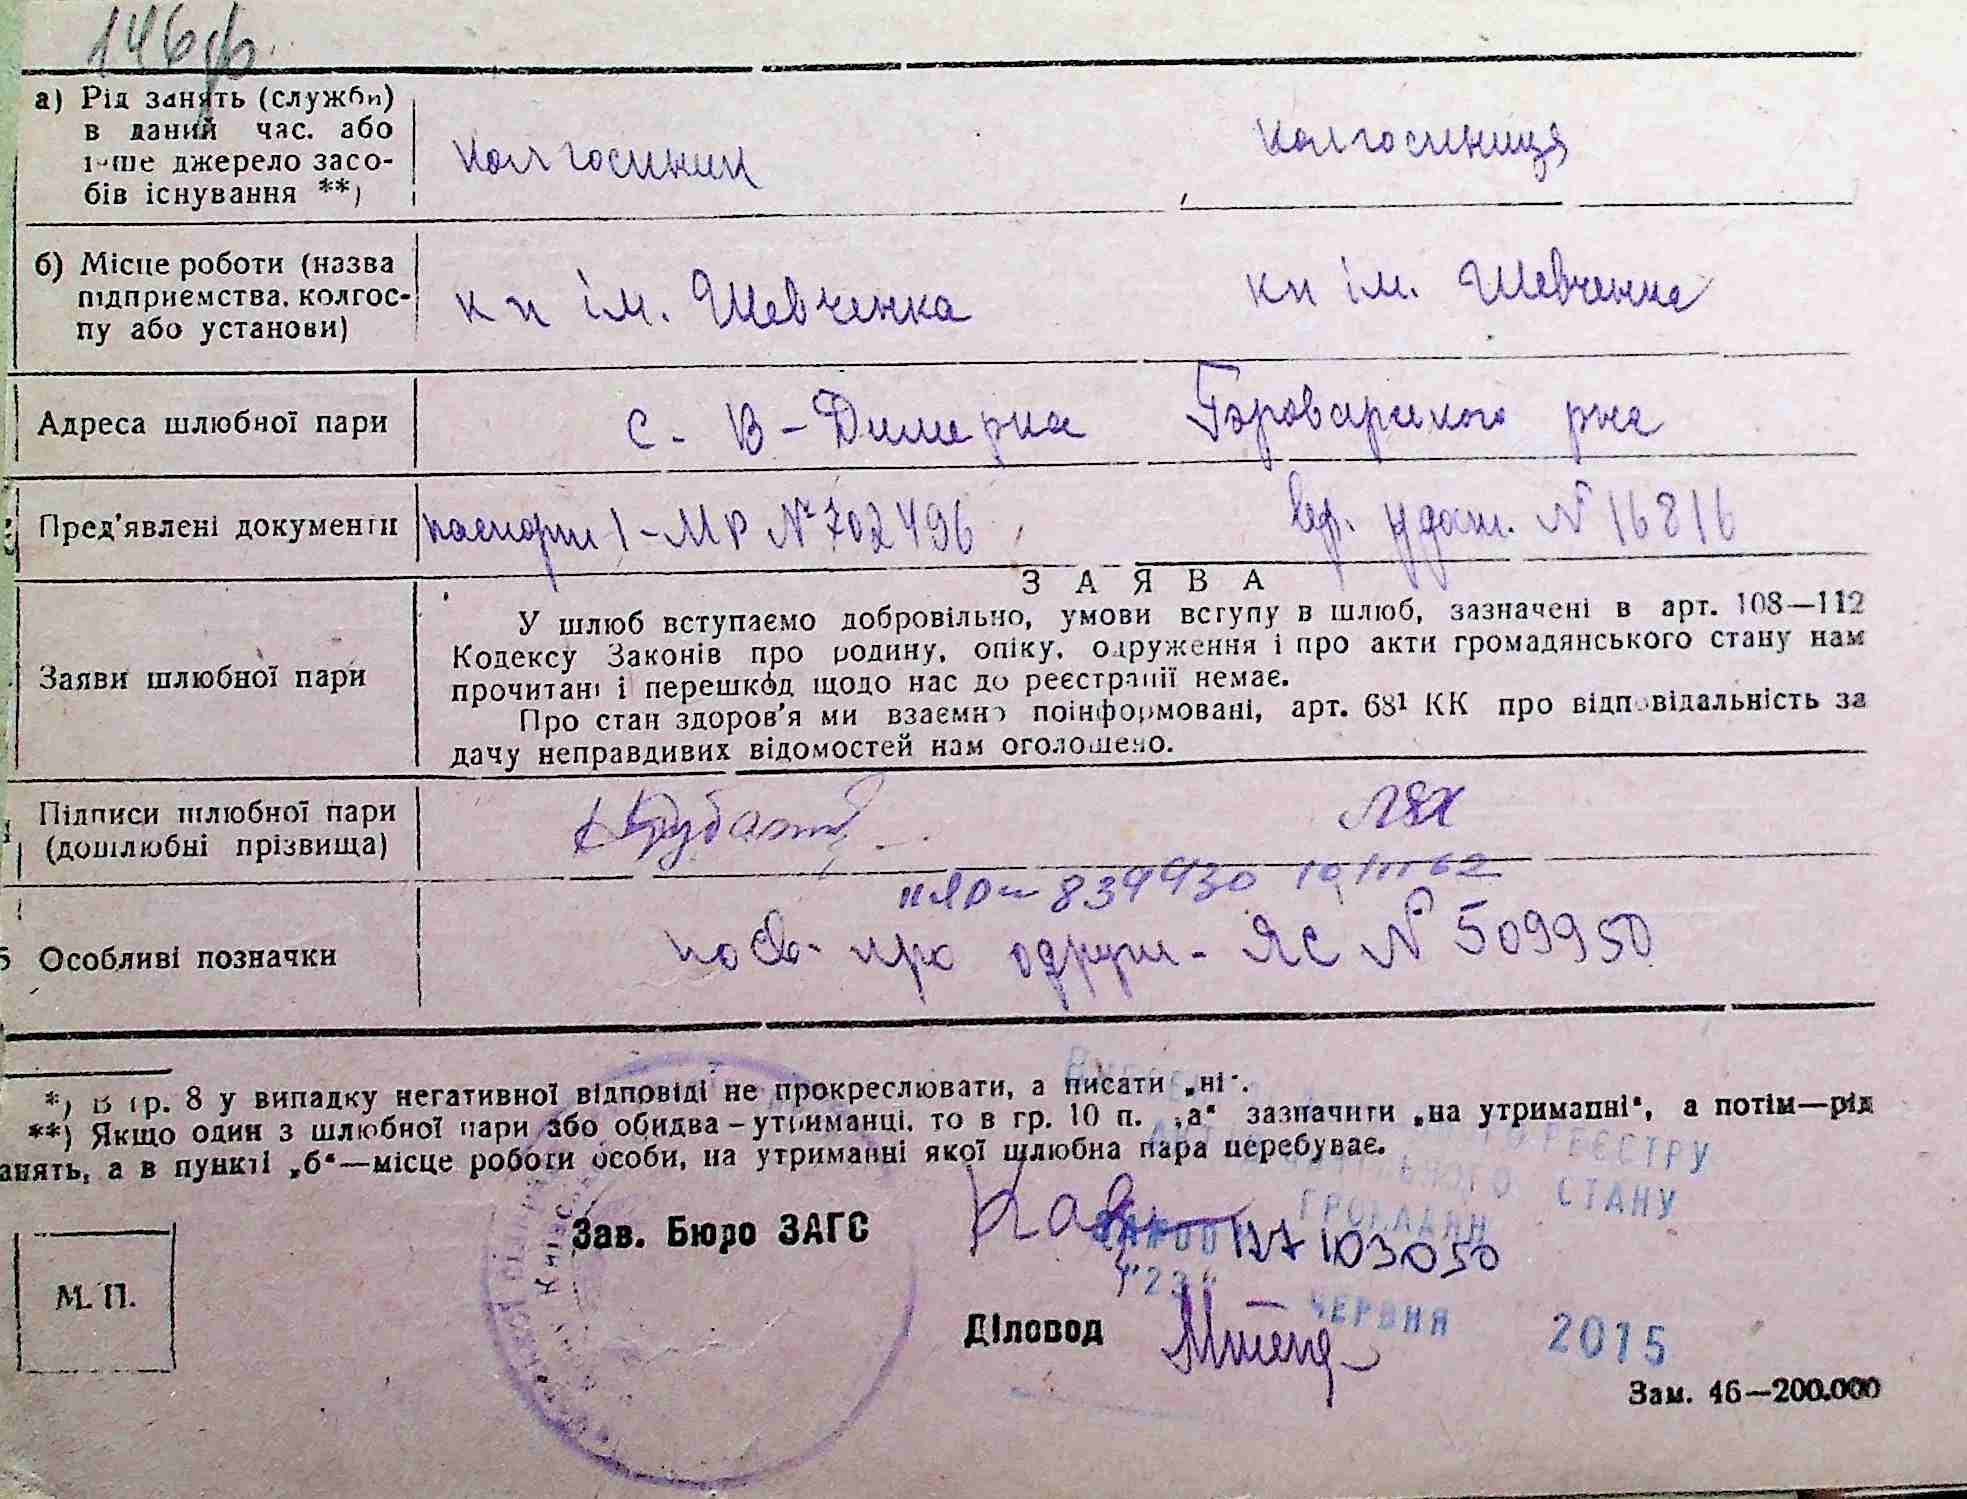 146 ф.
а) Рід занять (служби) в даний час, або інше джерело засобів існування **)
колгоспник
колгоспниця
б) Місце роботи (назва підприємства, колгоспу або установи)
к п ім. Шевченка
к п ім. Шевченка
Адреса шлюбної пари
с. В-Димерка Броварського р-на
Пред'явлені документи
паспорт I-МР № 702496
вр. удост. № 16816
Заяви шлюбної пари
ЗАЯВА
У шлюб вступаємо добровільно, умови вступу в шлюб, зазначені в арт. 108—112
Кодексу Законів про родину, опіку, одруження і про акти громадянського стану нам
прочитані і перешкод щодо нас до реєстрації немає.
Про стан здоров'я ми взаємно поінформовані, арт. 68¹ КК про відповідальність за
дачу неправдивих відомостей нам оголошено.
Підписи шлюбної пари
(дошлюбні прізвища)
Лях
839930 10/III 62
Особливі позначки
по св. про одруж. ЯС № 509950
*) В гр. 8 у випадку негативної відповіді не прокреслювати, а писати „ні".
**) Якщо один з шлюбної пари або обидва – утриманці, то в гр. 10 п. „а" зазначити „на утриманні", а потім—рід
анять, а в пункті „б"—місце роботи особи, на утриманні якої шлюбна пара перебуває.
РЕЄСТРУ
СТАНУ
ГРОМАДЯН
Зав. Бюро ЗАГС
103050
"23"
ЧЕРВНЯ 2015
М. П.
Діловод
Зам. 46—200.000